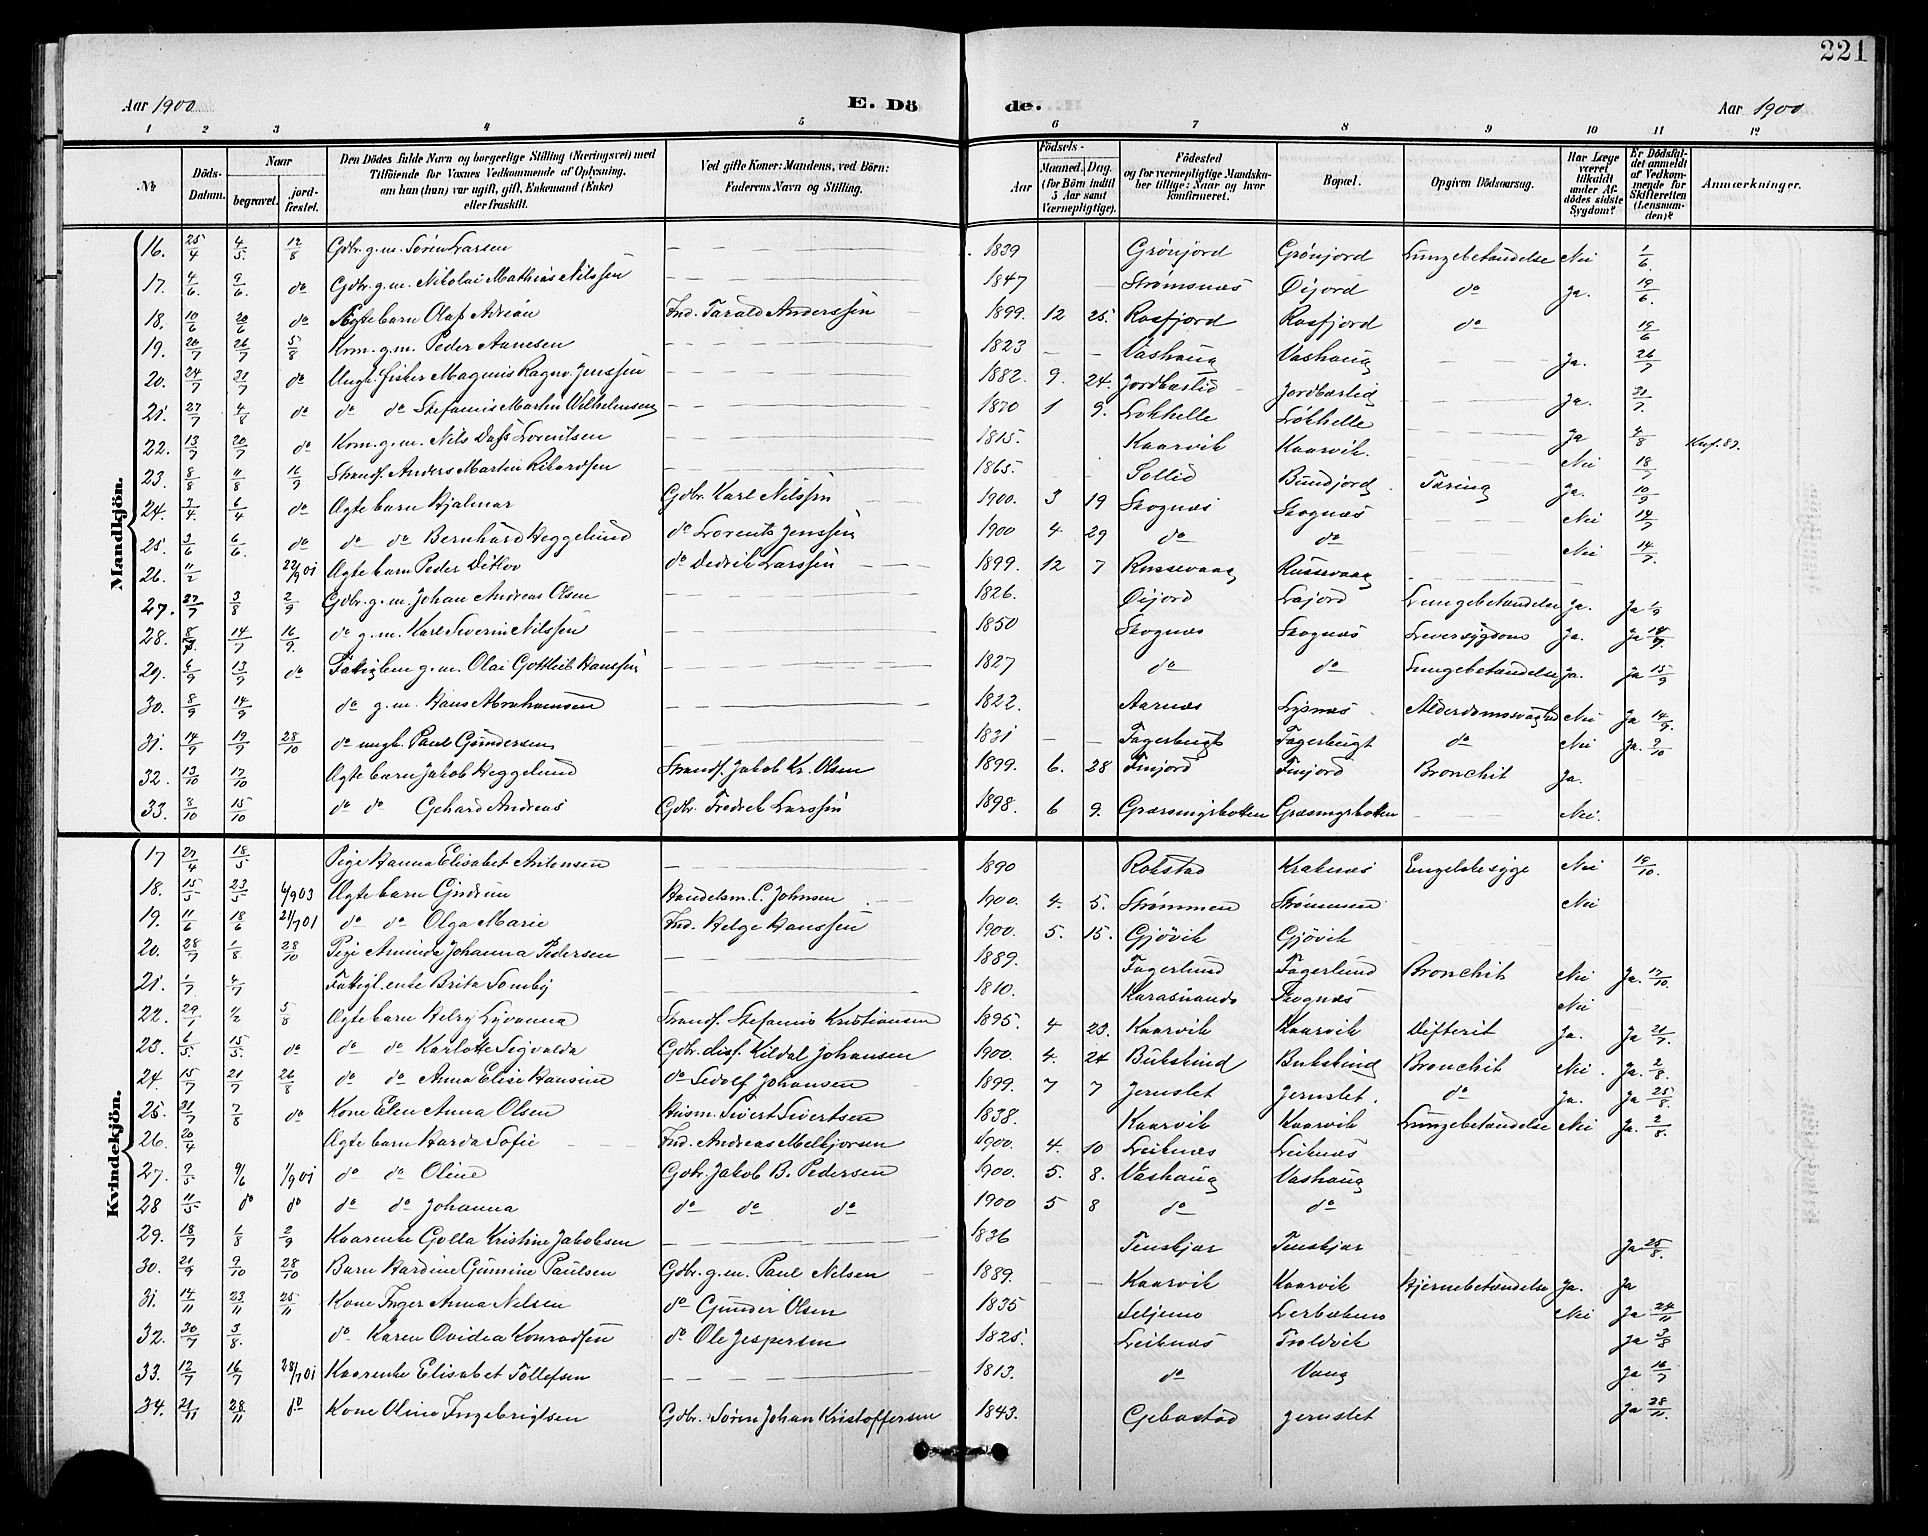 221
Aar 1900 E. Dö de. Aar 1900
1 2 3 4 5 6 7 8 9 10 11 12
№ Döds-Datum. Naar begravet. jord-fæstet. Den Dödes fulde Navn og borgerlige Stilling (Næringsvei) med Tilföiende for Voxnes Vedkommende af Oplysning, om han (hun) var ugift, gift, Enkemand (Enke) eller fraskilt. Ved gifte Koner: Mandens, ved Börn: Faderens Navn og Stilling. Födsels- Aar Maaned. Dag. (for Börn indtil 5 Aar samt Værnepligtige). Födested og for værnepligtige Mandskaber tillige: Naar og hvor konfirmeret. Bopæl. Opgiven Dödsaarsag. Har Læge været tilkaldt under Afdödes sidste Sygdom? Er Dödsfaldet anmeldt af Vedkommende for Skifteretten (Lensmanden)? Anmærkninger.
Mandkjön.
16. 25/4 4/5 12/8 Gdbr. g.m. Søren Larsen — — — 1839 Grønjord Grønjord Lungebetændelse Nei 1/6
17. 4/6 9/6 do Gdbr. g.m. Nikolai Mathias Nilssen — — — 1847 Strømsnæs Øijord do Ja. 19/6
18. 10/6 20/6 do Ægte barn Olaf Adrian Ind. Tarald Anderssen 1899. 12 25. Rosfjord Rosfjord do 19/6
19. 20/7 26/7 5/8 Krm. g.m. Peder Aanesen — — — 1823 Vashaug Vashaug Ja. 26/7
20. 24/7 31/7 do Ungk. fisker Magnus Ragnv. Jenssen — — — 1882. 9. 24. Jordbærlid Jordbærlid Ja. 31/7
21. 27/7 4/8 do do do Stefanus Martin Wilhelmsen — — — 1870 1 9. Løkhelle Løkhelle Ja 4/8
22. 13/7 20/7 do Krm. g.m. Nils Dass Lorentsen — — — 1815. Kaarvik Kaarvik. Nei 18/7
23. 8/8 11/8 16/9 Strands. Anders Martin Rikardsen — — — 1865. Sollid Bundjord Tæring Ja. 10/9
24. 3/4. 6/4 do Ægte barn Hjalmar Gdbr. Karl Nilssen 1900. 3 19 Skognæs Skognæs Nei 14/7
25. 3/6 6/6. do do do Bernhard Heggelund do Lorents Jenssen 1900 4 29 do do Nei 14/7.
26. 11/2 22/9 01 Ægte barn Peder Ditlov do Dedrik Larssen 1899. 12 7 Russevaag Russevaag
27. 27/7 3/8 2/9 Gdbr. g.m. Johan Andreas Olsen — — — 1826. Øijord Lajord Lungebetændelse Ja. Ja 1/9
28. 8/7. 14/7 16/9. do g.m. Karl Severin Nilssen — — — 1850 Skognæs Skognæs Leversygdom Ja. Ja 14/7
29. 6/9 13/9 do Fattiglem g.m. Olai Gottlieb Hanssen — — — 1827 do do Lungebetændelse Ja. Ja 15/9
30. 8/9 14/9 do g.m. Hans Abrahamsen — — — 1822. Aarnæs Lysnæs Alderdomssvaghed Nei Ja 14/9.
31. 14/9 19/9 28/10 do ungk. Paul Gundersen — — — 1831 Fagerbugt Fagerbugt do Nei Ja. 9/10
32. 13/10 17/10 Ægte barn Jakob Heggelund Strands. Jakob Kr. Olsen 1899. 6. 28 Finjord Finjord Bronchit Ja.
33. 8/10 15/10 do do Gehard Andreas Gdbr. Fredrik Larssen 1898. 6 9. Græsmyrbotten Græsmyrbotten Nei.
Kvindekjön.
17 27/4 18/5 Pige Hanna Elisabet Antonsen — — — 1890 Rokstad Kraknæs Engelskesyge Nei 19/10.
18. 15/5 23/5 6/9 03 Ægte barn Gudrun Handelsm. C. Johnsen 1900. 4. 5. Strømmen Strømmen Nei
19. 11/6 18/6 21/7 01 do do Olga Marie Ind. Helge Hanssen 1900. 5. 15. Gjøvik Gjøvik
20. 28/7 1/8 28/10 Pige Aminda Johanna Pedersen — — — 1889. Fagerlund Fagerlund Bronchit Nei Ja. 17/10
21. 1/7 4/7 Fattigl. enke Brita Somby — — — 1810. Karasuando Skognæs Nei
22. 29/1 1/2 5/8 Ægte barn Helzy Lyvanna Strands. Stefanus Kristiansen 1895. 4 23. Kaarvik Kaarvik Difterit Ja. Ja 21/7.
23. 6/5. 15/5. do do do Karlotte Sigvalda Gdbr. diss. Kildal Johansen 1900. 4. 24 Bukskind Bukskind Bronchit Nei. Ja. 2/8.
24. 15/7 21/7 26/8 do do Anna Elise Hansine do Sedolf Johansen 1899. 7 7 Jernslet Jernslet. do Ja. Ja 25/8.
25. 31/7 7/8 do Kone Elen Anna Olsen Husm. Sivert Sivertsen 1838. Kaarvik Kaarvik Lungebetændelse Nei Ja. 2/8.
26. 20/4 Ægte barn Harda Sofie Ind. Andreas Melkjorsen 1900. 4. 10 Leiknæs Leiknæs
27. 9/5 9/6 1/9 01 do do Oline Gdbr. Jakob B. Pedersen 1900. 5. 8. Vashaug Vashaug
28 11/5 do do do do Johanna do do do 1900 5 8 do do
29. 18/7 1/8 2/9 Kaarenke Golla Kristine Jakobsen — — — 1836 Tenskjær Tenskjær Ja 25/8.
30. 21/9 9/10 28/10 Barn Hardine Gunnine Paulsen Gdbr. g.m. Paul Nilsen 1889. Kaarvik Kaarvik Hjernebetændelse Ja. Ja
31. 14/11 23/11 25/11 Kone Inger Anna Nelsen do Gunder Olsen 1835 Seljemo Lerbækmo Nei Ja 24/11
32. 30/7 3/8. do Karen Ovidia Konradsen do Ole Jespersen 1825. Leiknæs Troldvik Ja 3/8
33. 12/7 16/7 28/7 01 Kaarenke Elisabet Tollefsen — — — 1813. do Vang Ja 16/7
34. 21/11 28/11 do Kone Oline Ingebrigtsen Gdbr. Søren Johan Kristoffersen 1843. Gebostad Jernslet Ja 28/11.